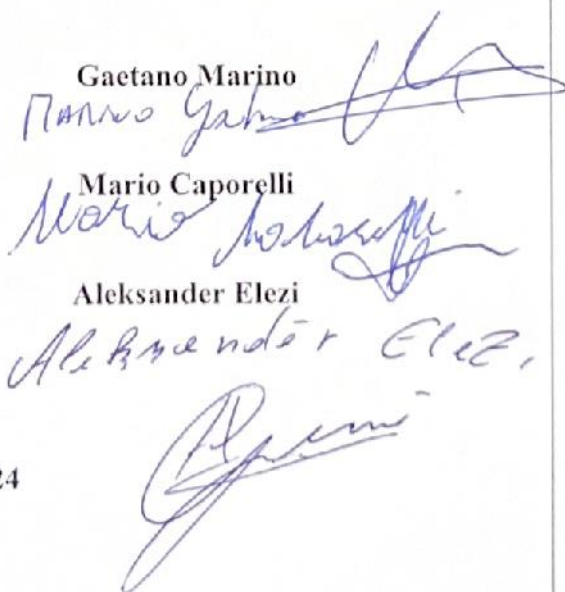 Gaetano Marino
Marino
Mario Caporelli
Mario
Aleksander Elezi
Aleksander Elezi
24